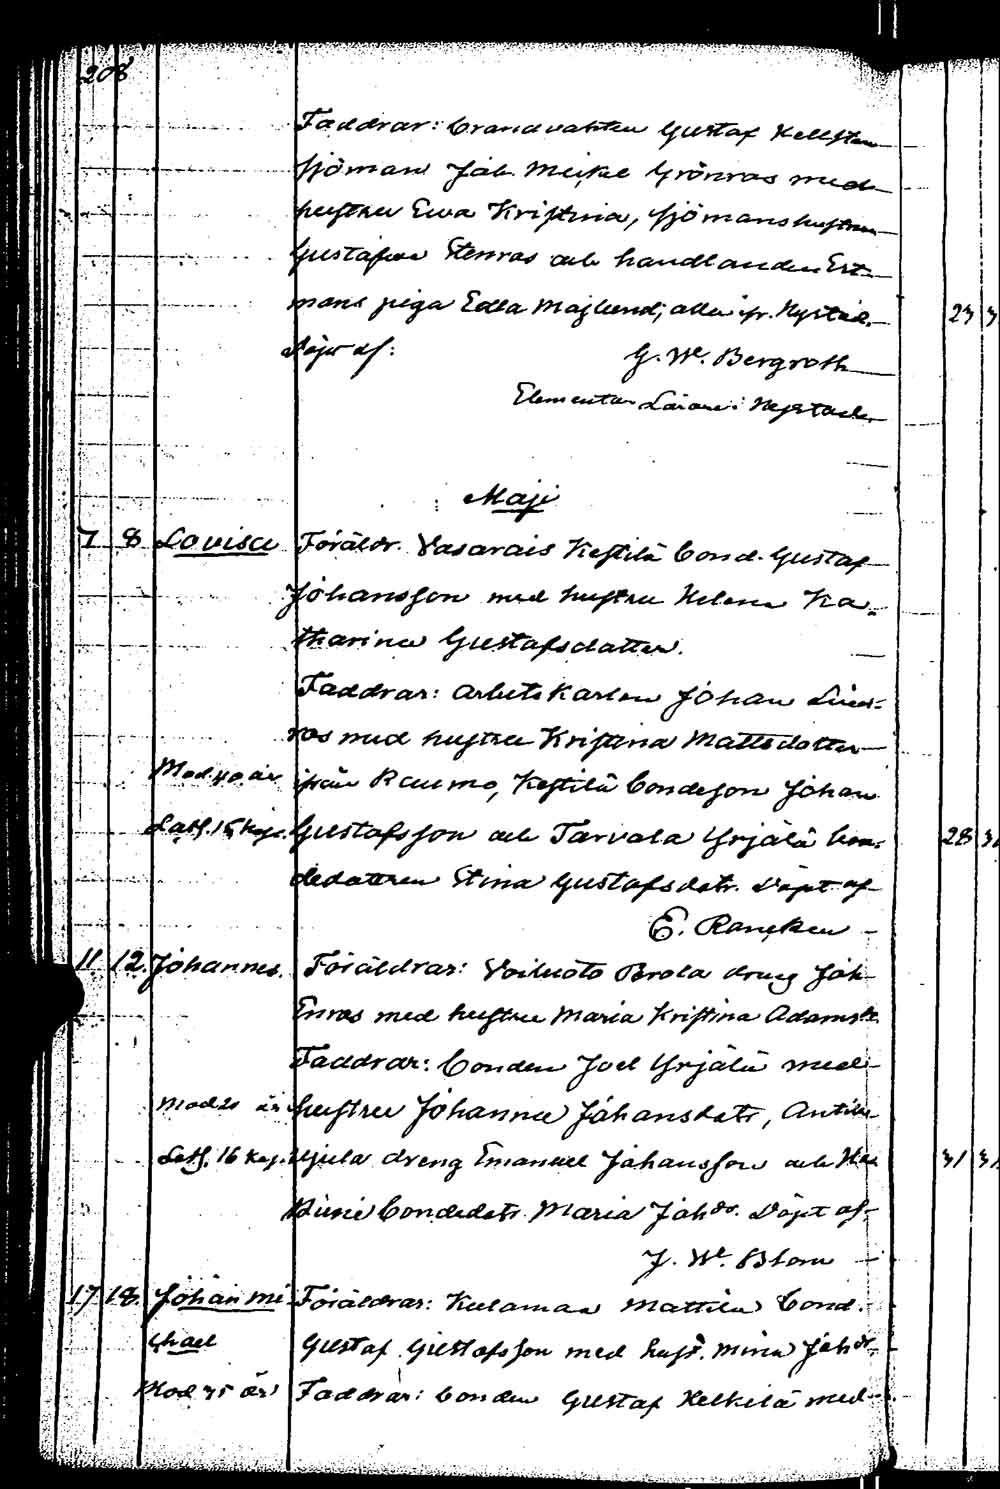 208
Faddrar: brandvakten Gustaf Hellsten
sjöman Joh. Mickel Grönroos med
hustru Ewa Kristina, sjömanshustrun
Gustafva Stenros och handlanden Ek-
mans piga Edla Majlund; alla ifr. Nystad.
Döpt af: G. W. Bergroth
Elementar Lärare i Nystad
Maji
7 8 Lovisa Föräldr. Vasarais Kestilä bond. Gustaf
Johansson med hustru Helena Ka-
tharina Gustafsdatter.
Faddrar: arbetskarlen Johan Lind-
ros med hustru Kristina Mattsdotter
Mod. 40 år ifrån Raumo, Kestilä bondeson Johan
Gustafsson och Tarvola Yrjälä bon-
dedattren Stina Gustafsdotr. Döpt af
E. Rancken
11 12. Johannes. Föräldrar: Voiluoto Prola dreng Joh
Enros med hustru Maria Kristina Adamsdr
Faddrar: bonden Joel Yrjälä med
Mod 21 år hustru Johanna Johansdotr, Antila
dreng Emanuel Johansson och
bondedotr. Maria Johdr. Döpt af
J. W. Blom
17 18. Johan Mi Föräldrar: Kulamaa Mattila bond.
chael Gustaf Gustafsson med hust. Mina Johdr
Mod 35 år Faddrar: bonden Gustaf Heikkilä med
23 3
28 3
31 3